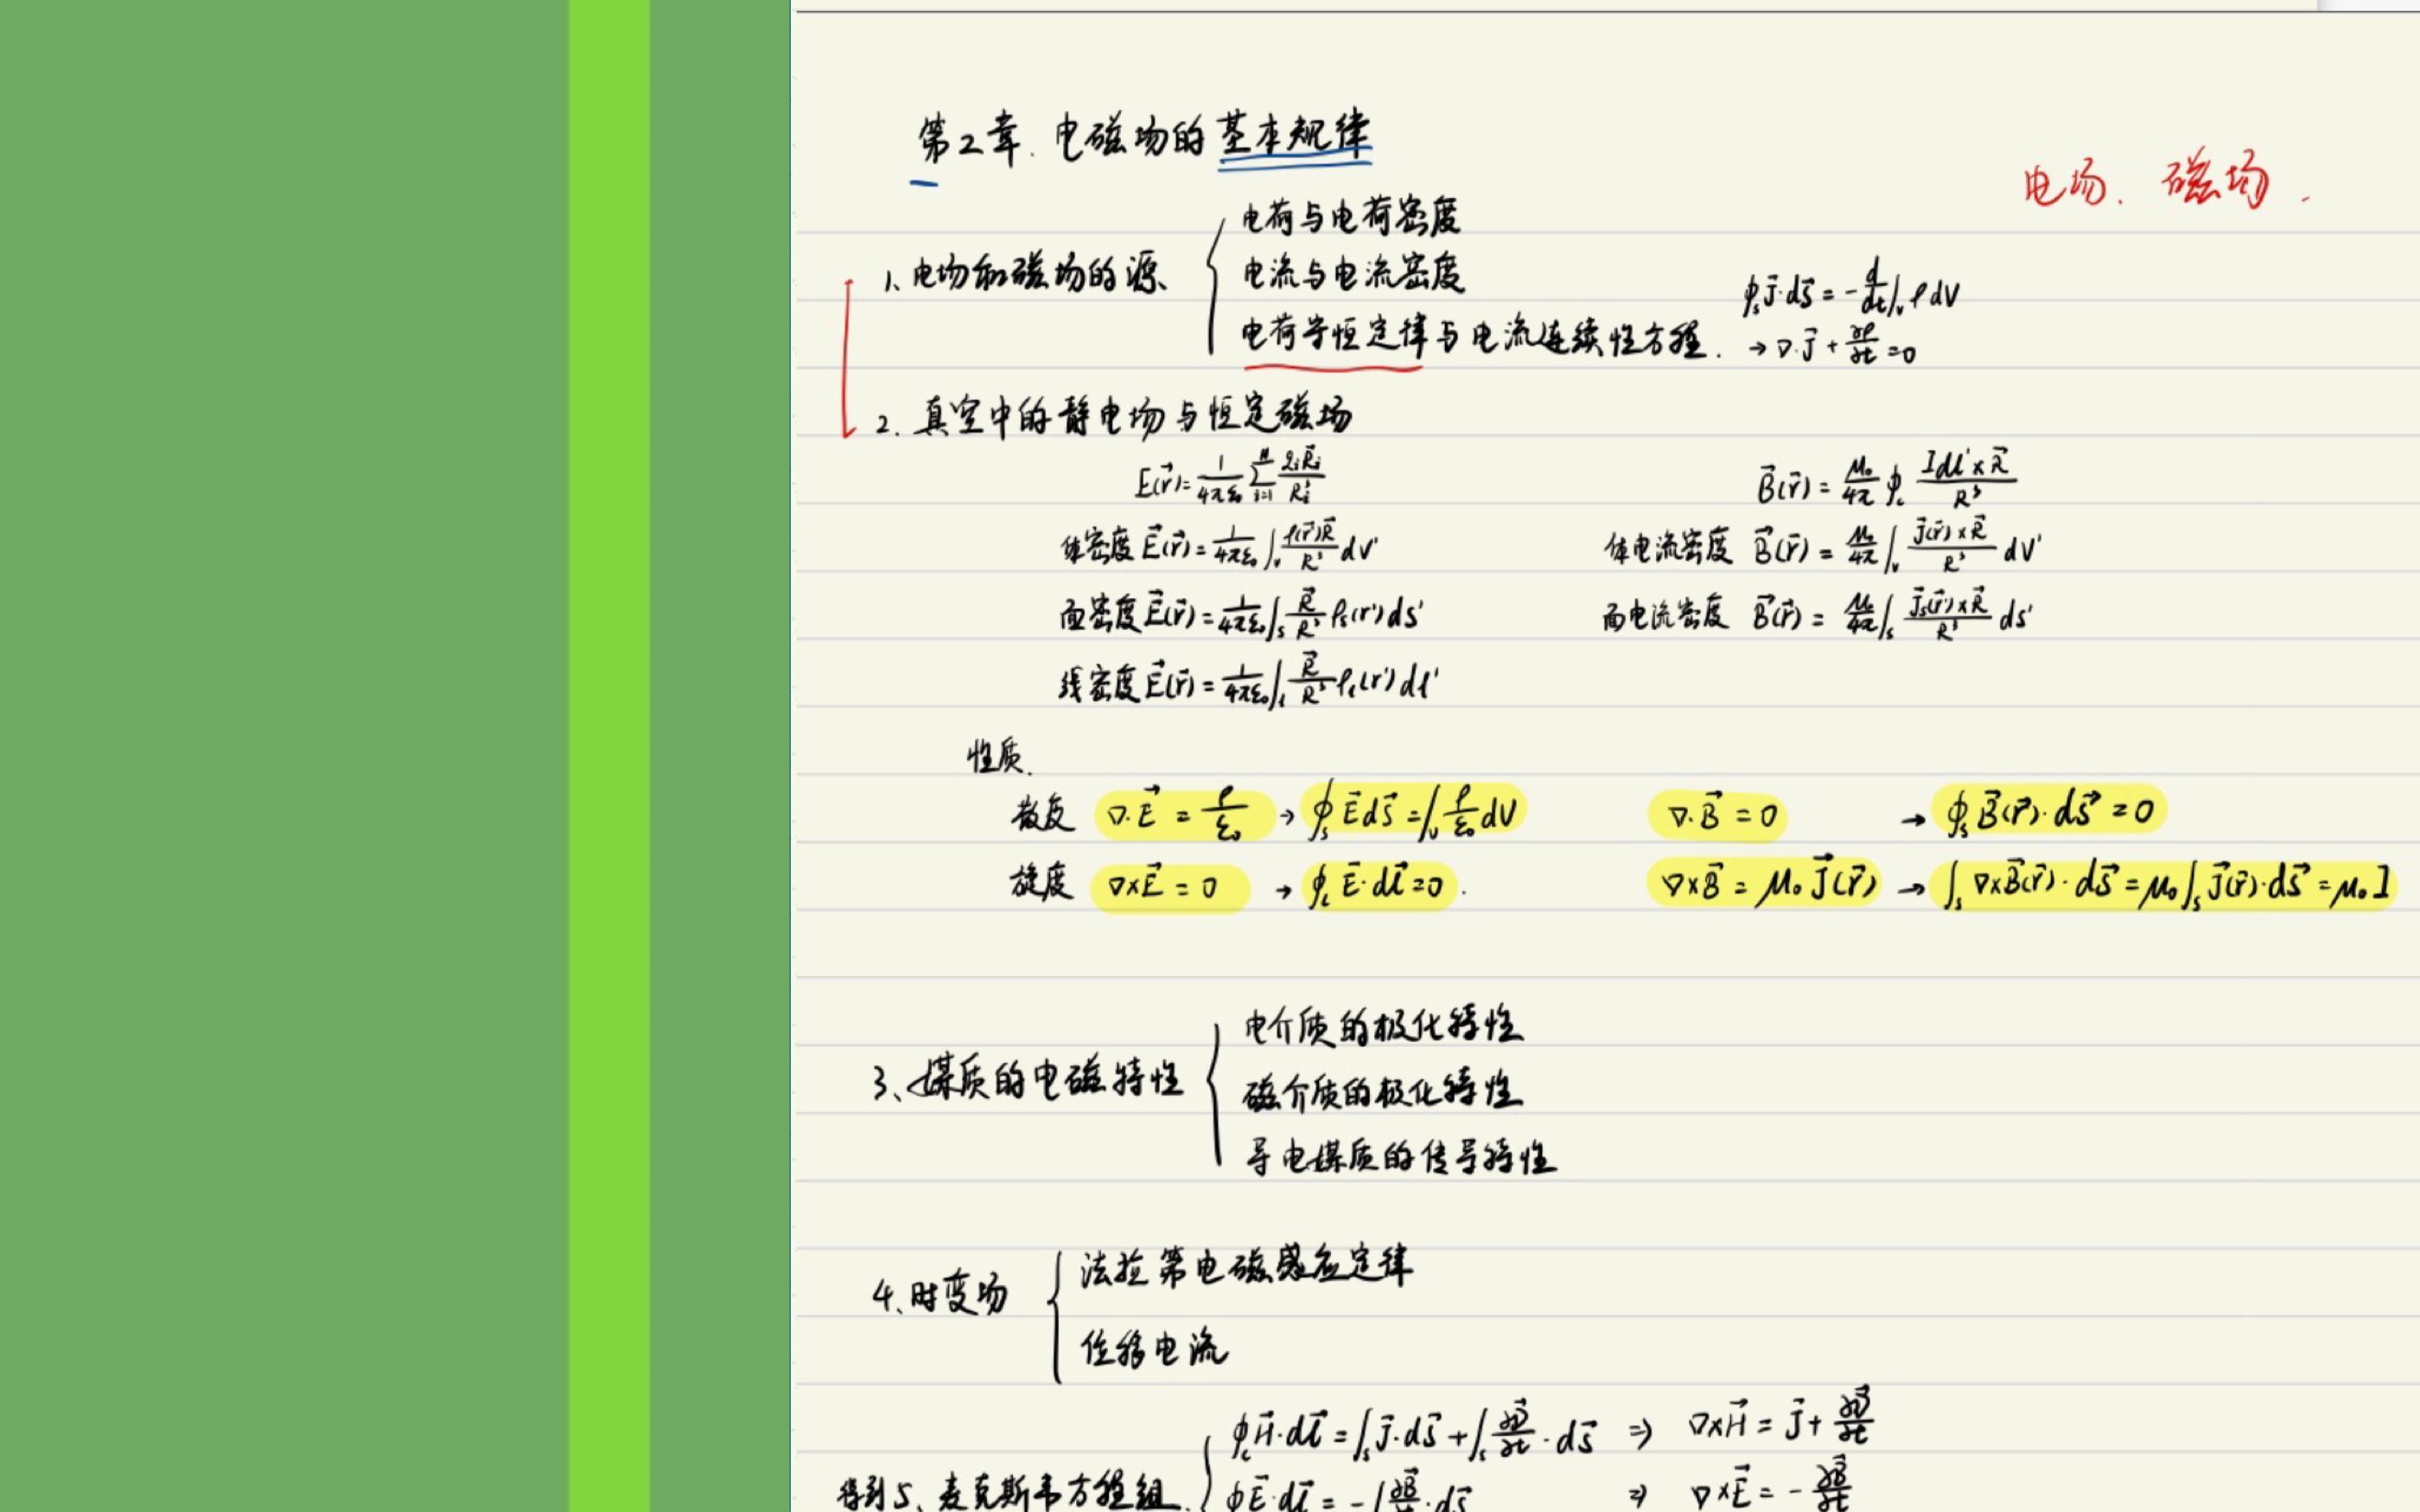 第2章. 电磁场的基本规律
电场. 磁场.
1、电场和磁场的源
电荷与电荷密度
电流与电流密度
电荷守恒定律与电流连续性方程.
∮ₛJ⃗·dS⃗ = -d/dt∫ᵥρdV
→∇·J⃗ + ∂ρ/∂t = 0
2. 真空中的静电场与恒定磁场
E(r⃗) = 1/4πε₀ ∑ᵢ₌₁ᴺ qᵢR⃗ᵢ/Rᵢ³
B⃗(r⃗) = μ₀/4π ∮c Idl'×R⃗/R³
体密度 E⃗(r⃗) = 1/4πε₀ ∫ᵥ ρ(r⃗)R⃗/R³ dV'
体电流密度 B⃗(r⃗) = μ₀/4π ∫ᵥ J⃗(r⃗)×R⃗/R³ dV'
面密度 E⃗(r⃗) = 1/4πε₀ ∫ₛ R⃗/R³ ρₛ(r')ds'
面电流密度 B⃗(r⃗) = μ₀/4π ∫ₛ J⃗ₛ(r⃗')×R⃗/R³ ds'
线密度 E⃗(r⃗) = 1/4πε₀ ∫ₗ R⃗/R³ ρₗ(r')dl'
性质.
散度 ∇·E⃗ = ρ/ε₀ → ∮ₛE⃗dS⃗ = ∫ᵥρ/ε₀dV ∇·B⃗ = 0 → ∮ₛB⃗(r⃗)·dS⃗ = 0
旋度 ∇×E⃗ = 0 → ∮cE⃗·dl⃗ = 0. ∇×B⃗ = μ₀J⃗(r⃗) → ∫ₛ∇×B⃗(r⃗)·dS⃗ = μ₀∫ₛJ⃗(r⃗)·dS⃗ = μ₀I
3、媒质的电磁特性
电介质的极化特性
磁介质的极化特性
导电媒质的传导特性
4、时变场
法拉第电磁感应定律
位移电流
得到5、麦克斯韦方程组
∮cH⃗·dl⃗ = ∫ₛJ⃗·dS⃗ + ∫ₛ∂D⃗/∂t·dS⃗ ⇒ ∇×H⃗ = J⃗ + ∂D⃗/∂t
∮E⃗·dl⃗ = -∫∂B⃗/∂t·dS⃗ ⇒ ∇×E⃗ = -∂B⃗/∂t